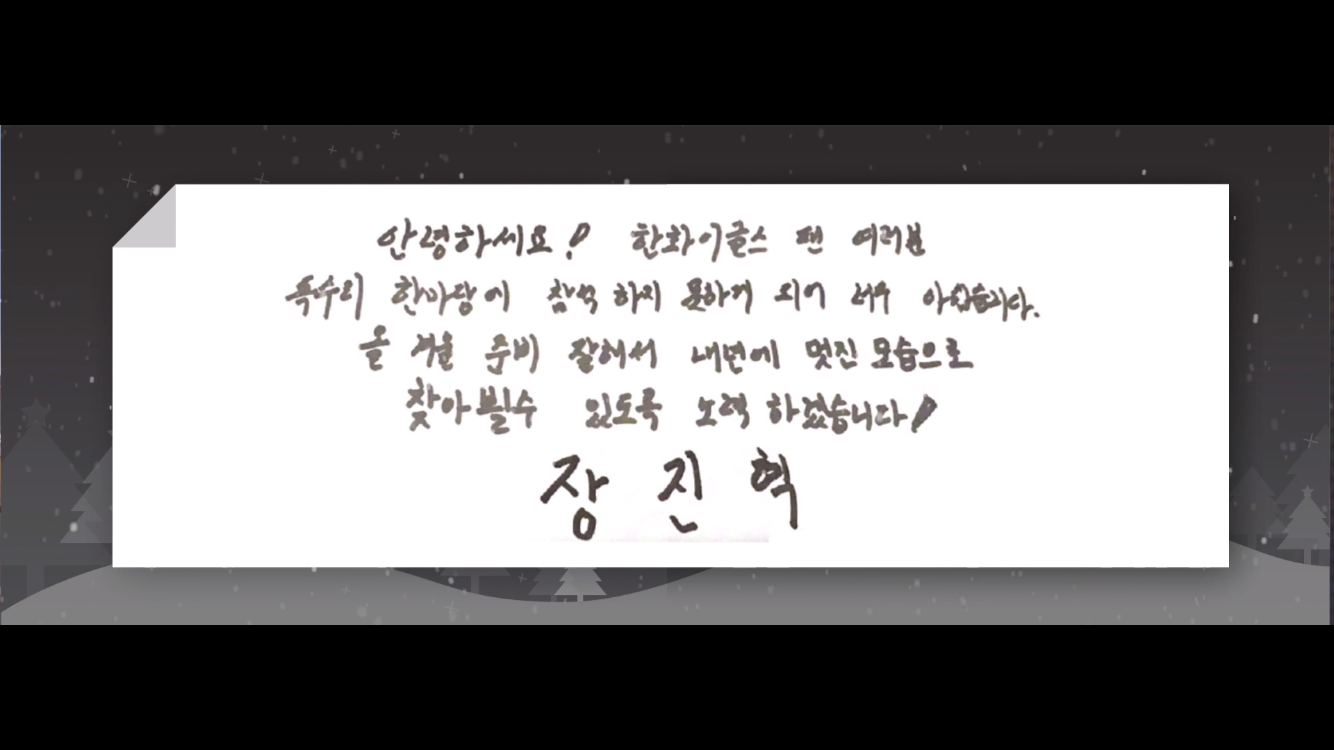 안녕하세요! 한화이글스 팬 여러분
독수리 한마당에 참석 하지 못하게 되어 너무 아쉽습니다.
올 겨울 준비 잘해서 내년에 멋진 모습으로
찾아뵐수 있도록 노력 하겠습니다!
장진혁